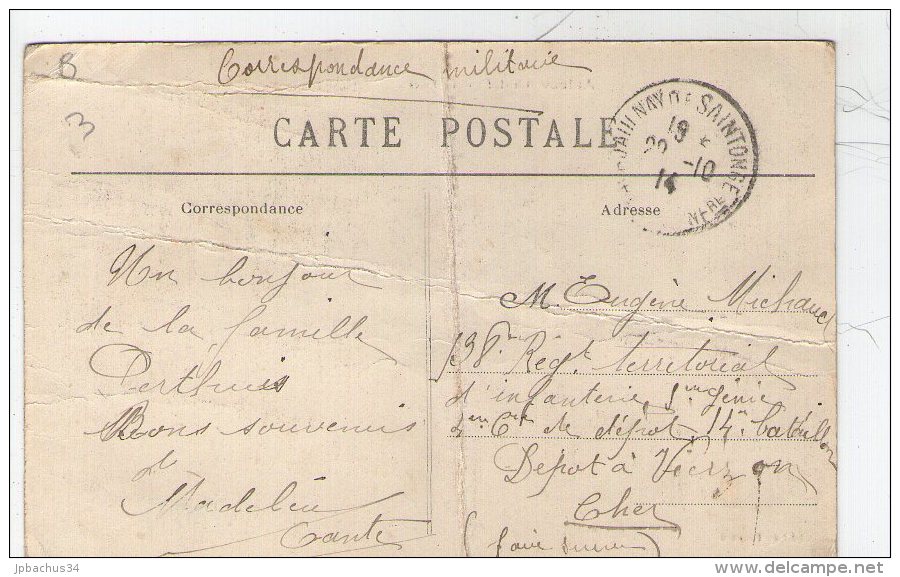 B
3
Correspondance militaire
CARTE POSTALE
AULNAY DE SAINTONGE
19
22 -10
14
Correspondance
Adresse
Un bonjour
de la famille
Perthuis
Bons souvenirs
de
Madeleine
Tante
M. Eugène Michaud
138e Régt territorial
d'infanterie
4em Cie de dépôt 14e bataillon
Dépot à Vierzon
Cher
(faire suivre)
jpbachus34
www.delcampe.net